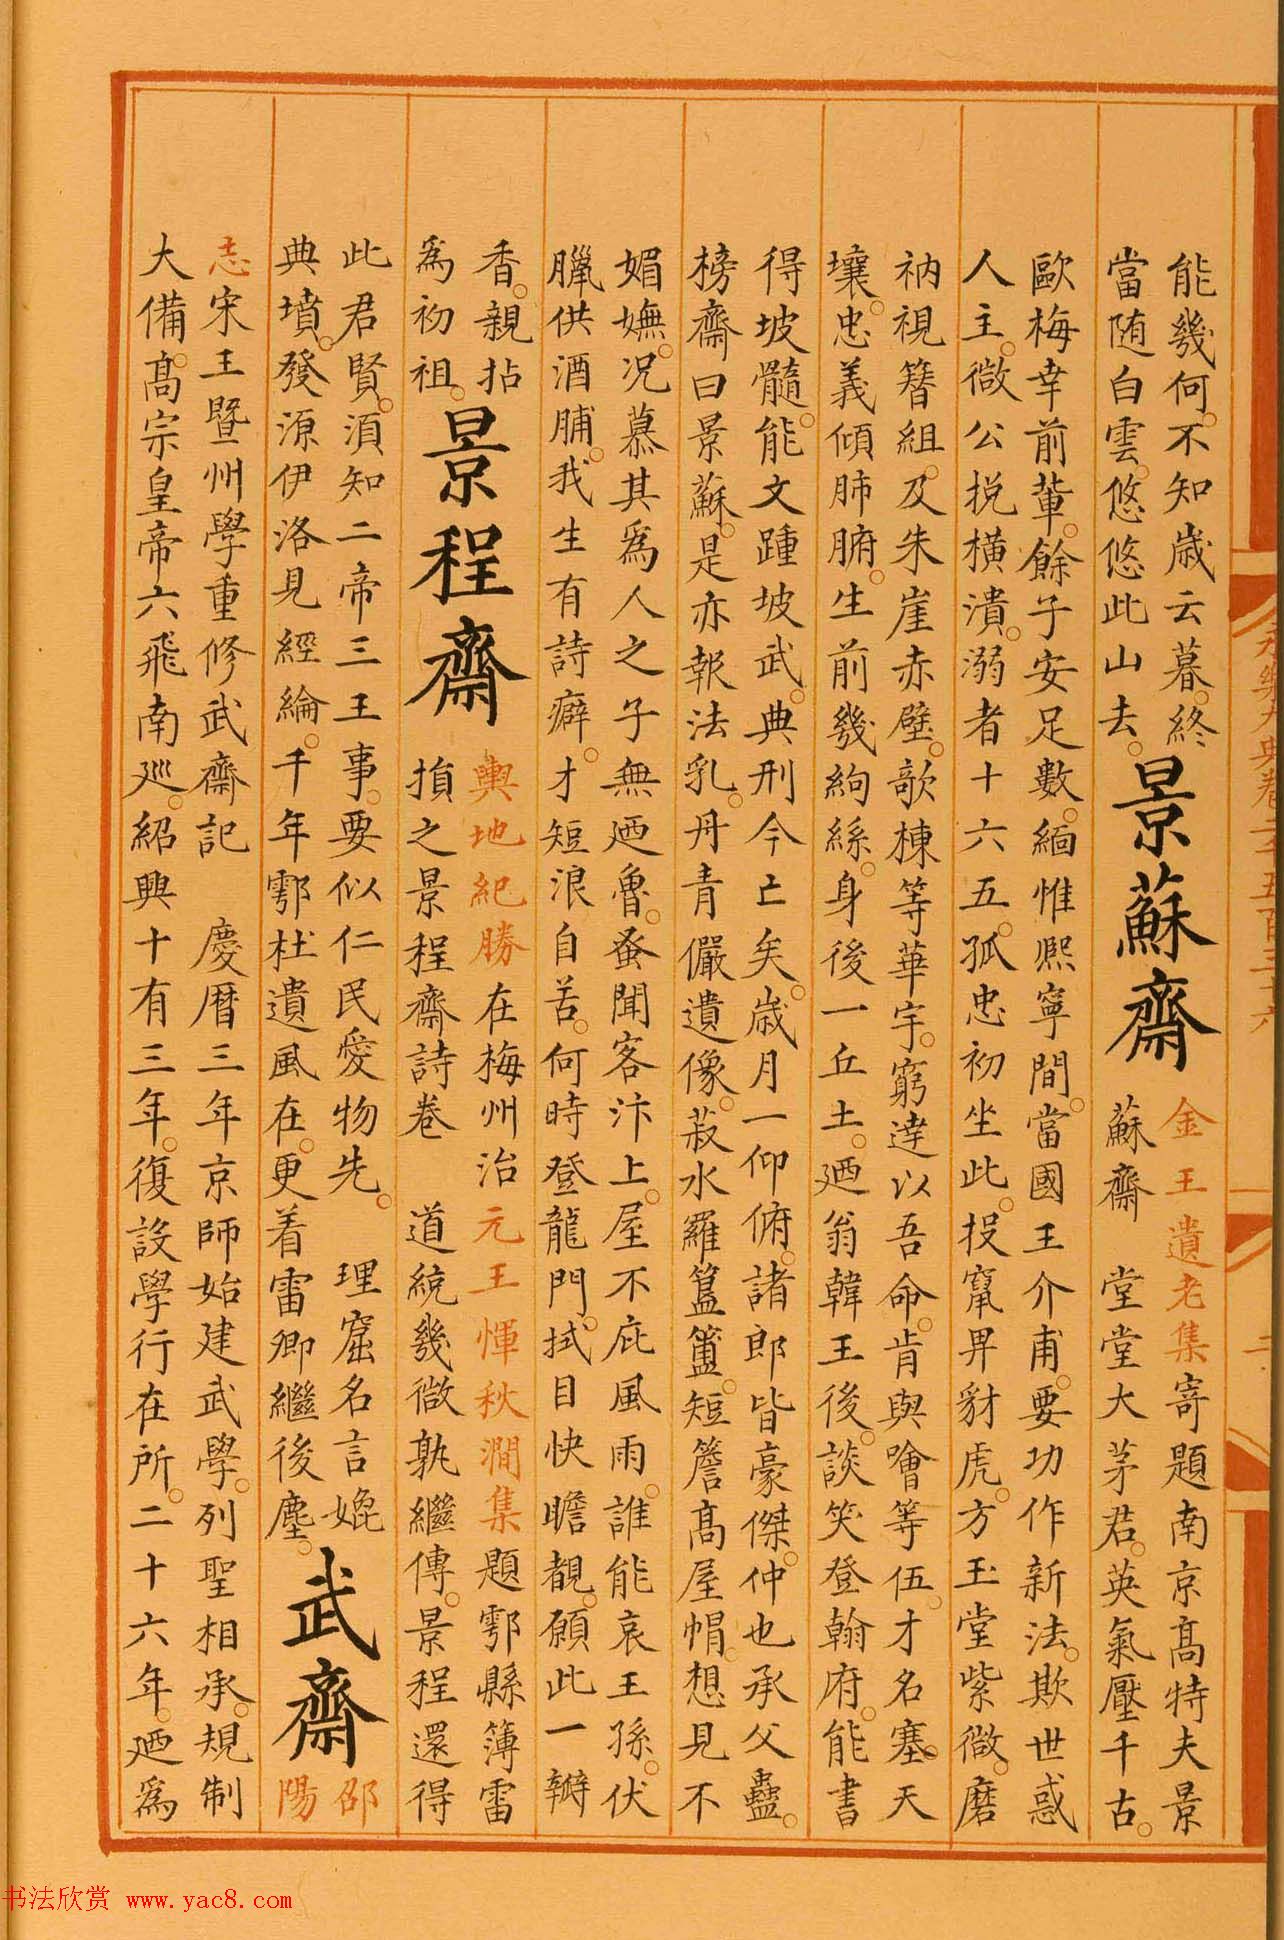 能幾何。不知歲云暮。終
當随白雲。悠悠此山去。
景蘇齋
金王遺老集寄題南京髙特夫景
蘇齋 堂堂大茅君。英氣壓千古。
歐梅幸前軰。餘子安足數。緬惟熈寧間。當國王介甫。要功作新法。欺世惑
人主。微公挽橫潰。溺者十六五。孤忠初坐此。投竄畀豺虎。方玉堂紫微。磨
衲視簪組。及朱崖赤壁。歌棟等華宇。窮達以吾命。肯與噲等伍。才名塞天
壤。忠義傾肺腑。生前幾絇絲。身後一丘土。廼翁韓王後。談笑登翰府。能書
得坡髓。能文踵坡武。典刑今亡矣。歲月一仰俯。諸郎皆豪傑。仲也承父蠱。
榜齋曰景蘇。是亦報法乳。丹青儼遺像。菽水羅簋簠。短簷髙屋帽。想見不
媚嫵。况慕其爲人之子無廼魯。蚤聞客汴上。屋不庇風雨。誰能哀王孫。伏
臘供酒脯。我生有詩癖。才短浪自苦。何時登龍門。拭目快瞻覩。願此一瓣
香。親拈
爲初祖。
景程齋
輿地紀勝在梅州治元王惲秋澗集題鄠縣簿雷
損之景程齋詩卷 道統幾微孰繼傳。景程還得
此君賢。湏知二帝三王事。要似仁民愛物先。 理窟名言娩
典墳。發源伊洛見經綸。千年鄠杜遺風在。更着雷卿繼後塵。
武齋
邵
陽
志宋王暨州學重修武齋記 慶曆三年京師始建武學。列聖相承。規制
大備。髙宗皇帝六飛南廵。紹興十有三年。復設學行在所。二十六年。廼爲
永樂大典卷二千五百三十六
二
书法欣赏 www.yac8.com